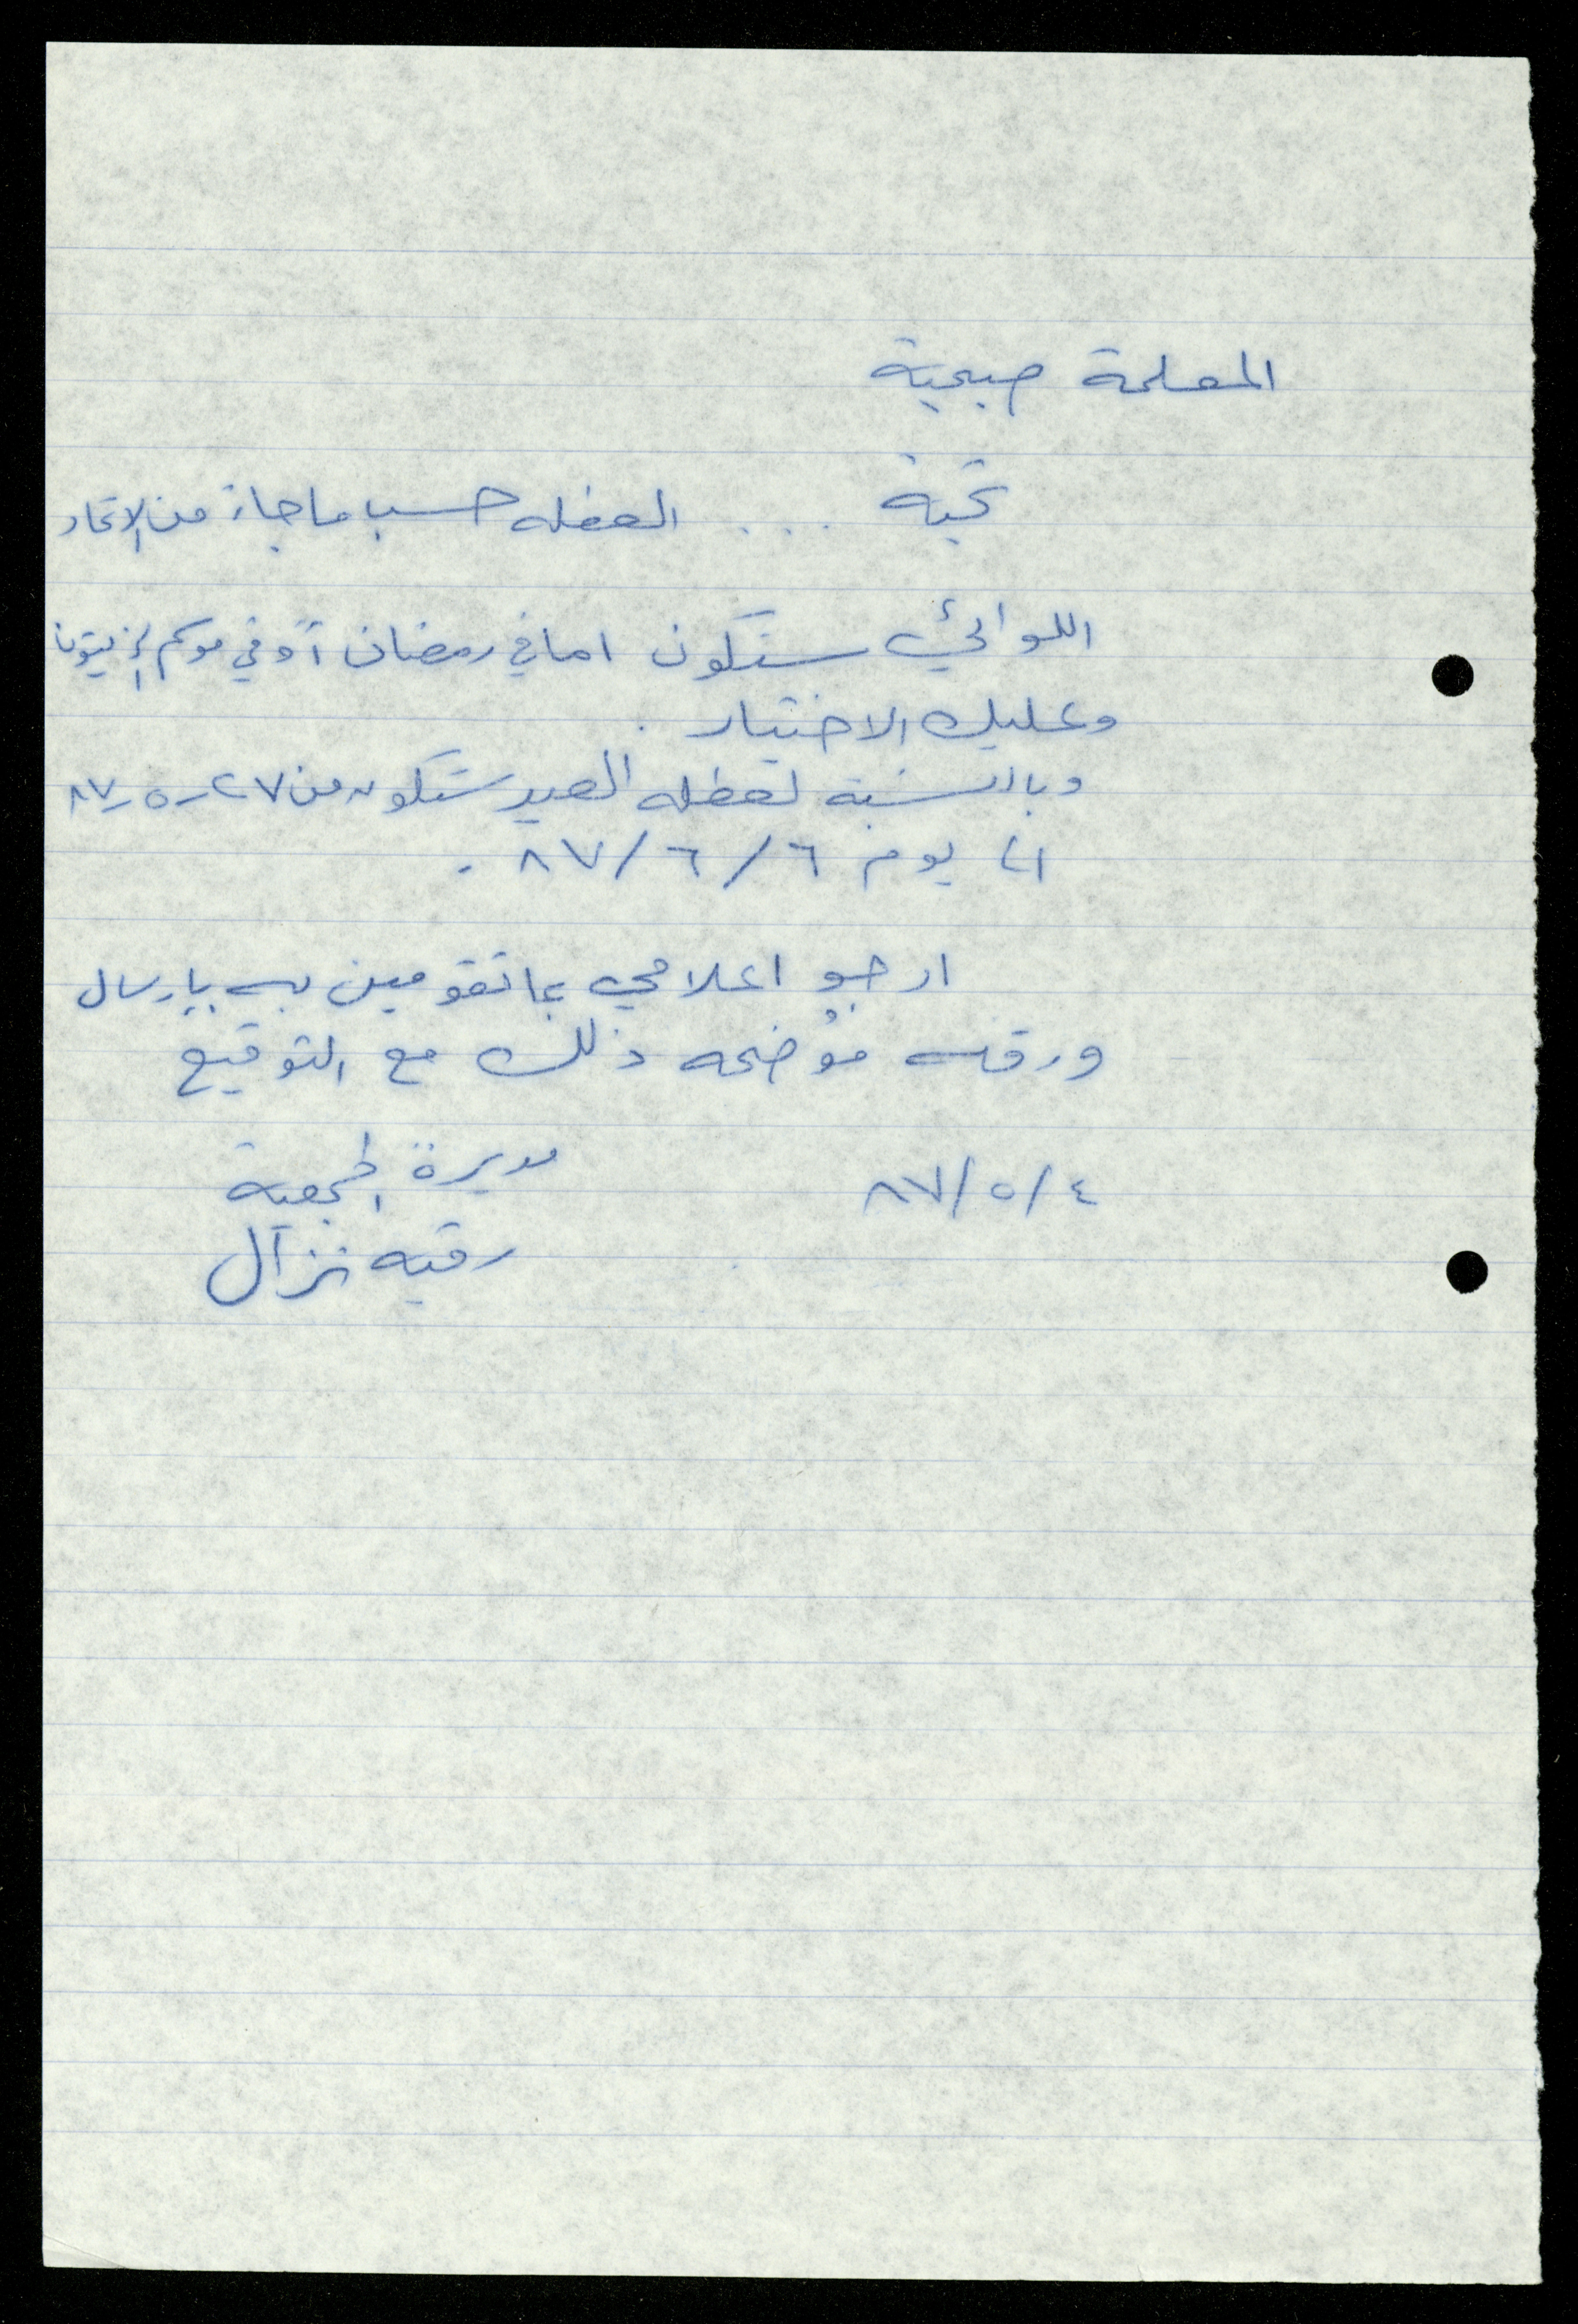 المعلمة صبحية
تحية ... العطله حسب ما جاء من الاتحاد
اللوائي ستكون اما في رمضان أو في موسم الزيتون
وعليك الاختيار .
وبالنسبة لعطله العيد ستكون من ٢٧-٥-٨٧
الى يوم ٦/٦/٨٧ .
ارجو اعلامي بما تقومين به بإرسال
ورقه موُضحه ذلك مع التوقيع
٤/٥/٨٧ مديرة الجمعية
رقيه نزال